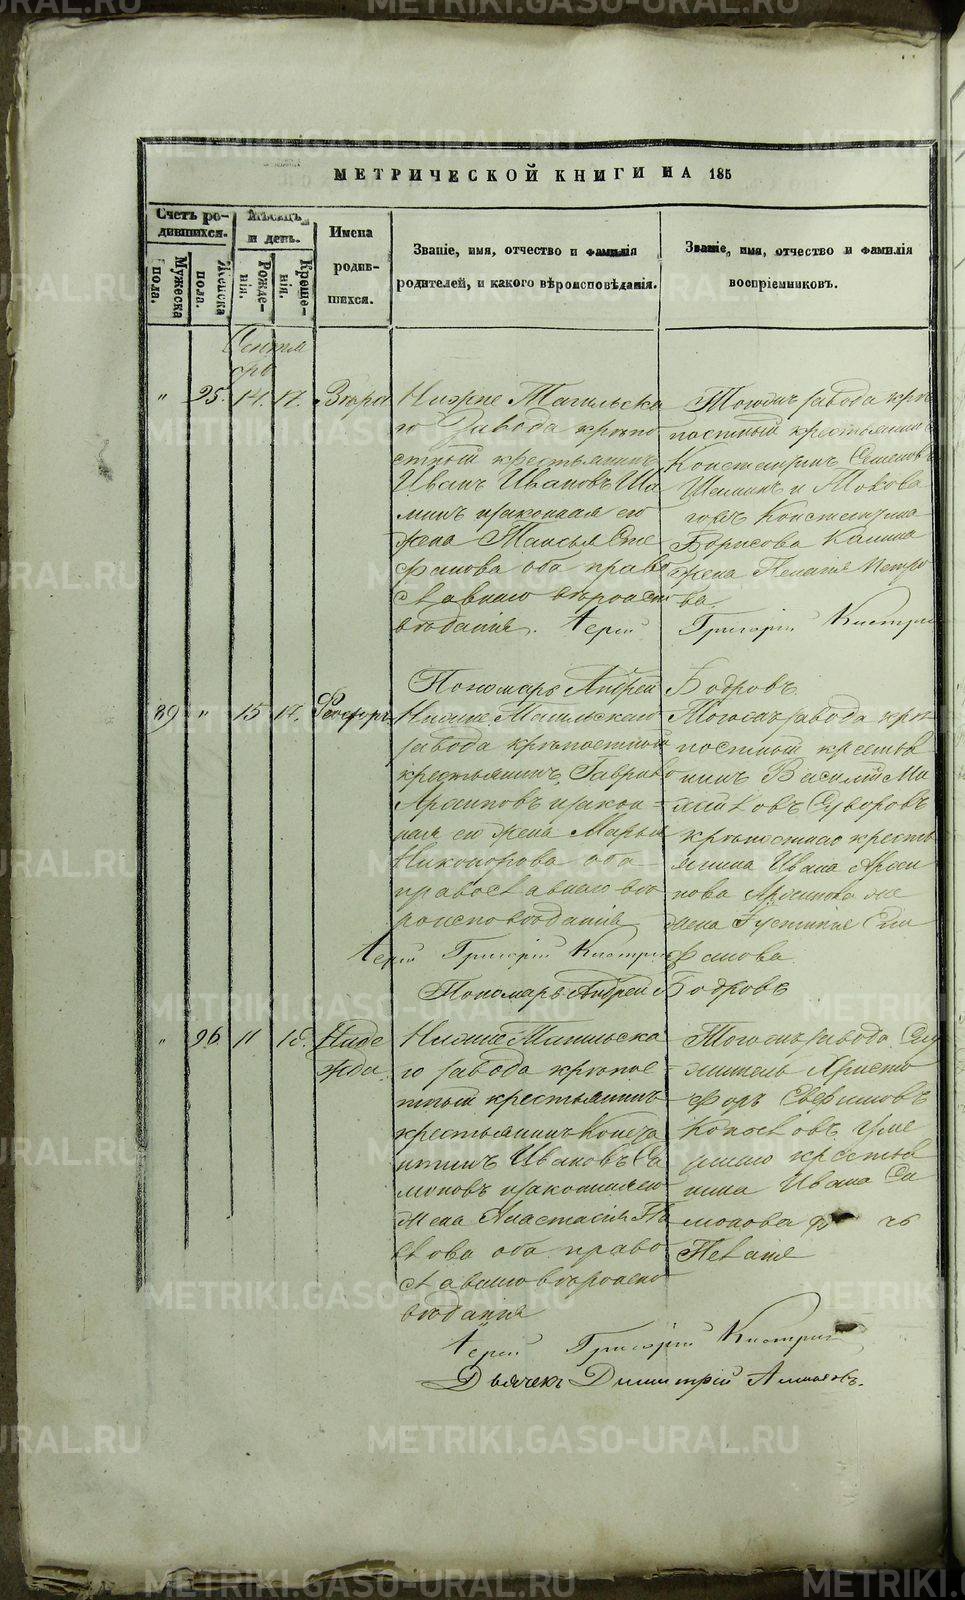 METRIKI.GASO-URAL.RU
МЕТРИЧЕСКОЙ КНИГИ НА 185
Счетъ ро-
дившихся.
Мужеска пола.
Женска пола.
Мѣсяцъ
и день.
Рожде-
нія.
Креще-
нія.
Имена
родив-
шихся.
Званіе, имя, отчество и фамилія
родителей, и какого вѣроисповѣданія.
Званіе, имя, отчество и фамилія
воспріемниковъ.
Сентя
брь
" 95. 14. 17.
Нижне Тагильска
го Завода крѣпо
стный крестьянинъ
Иванъ Ивановъ Ша
минъ и законная его
жена Таисья Сте
фанова оба право
славнаго вѣроиспо
вѣданія. Іерей
Тогожъ завода крѣ
постный крестьянинъ
Константинъ Семеновъ
Шаминъ и
Константина
Борисова
жена Пелагея Петро
ва.
Григорій
Пономарь Андрей Бодровъ.
89 " 15 17. Ѳеодоръ
Нижне Тагильскаго
завода крѣпостной
крестьянинъ Гаврило
Архиповъ и закон-
ная его жена Марья
Никонорова оба
православнаго вѣ
роисповѣданія
Тогожъ завода крѣ
постный крестья
нинъ Василій
Суворовъ
крѣпостнаго кресть
янина Ивана Архи
пова
жена Устинья Сте
фанова
Іерей Григорій
Пономарь Андрей Бодровъ
" 96 11 18. Наде
жда.
Нижне Тагильска
го завода крѣпос
тный крестьянинъ
крестьянинъ Конста
нтинъ Ивановъ Са
моновъ и законная его
жена Анастасія Па
влова оба право
славнаго вѣроиспо
вѣданія
Тогожъ завода Слу
житель Аристо
форъ Евфимовъ
Копосовъ
крестья
нина Ивана Са
монова
Пелагея
Іерей Григорій
Дьячекъ Димитрій